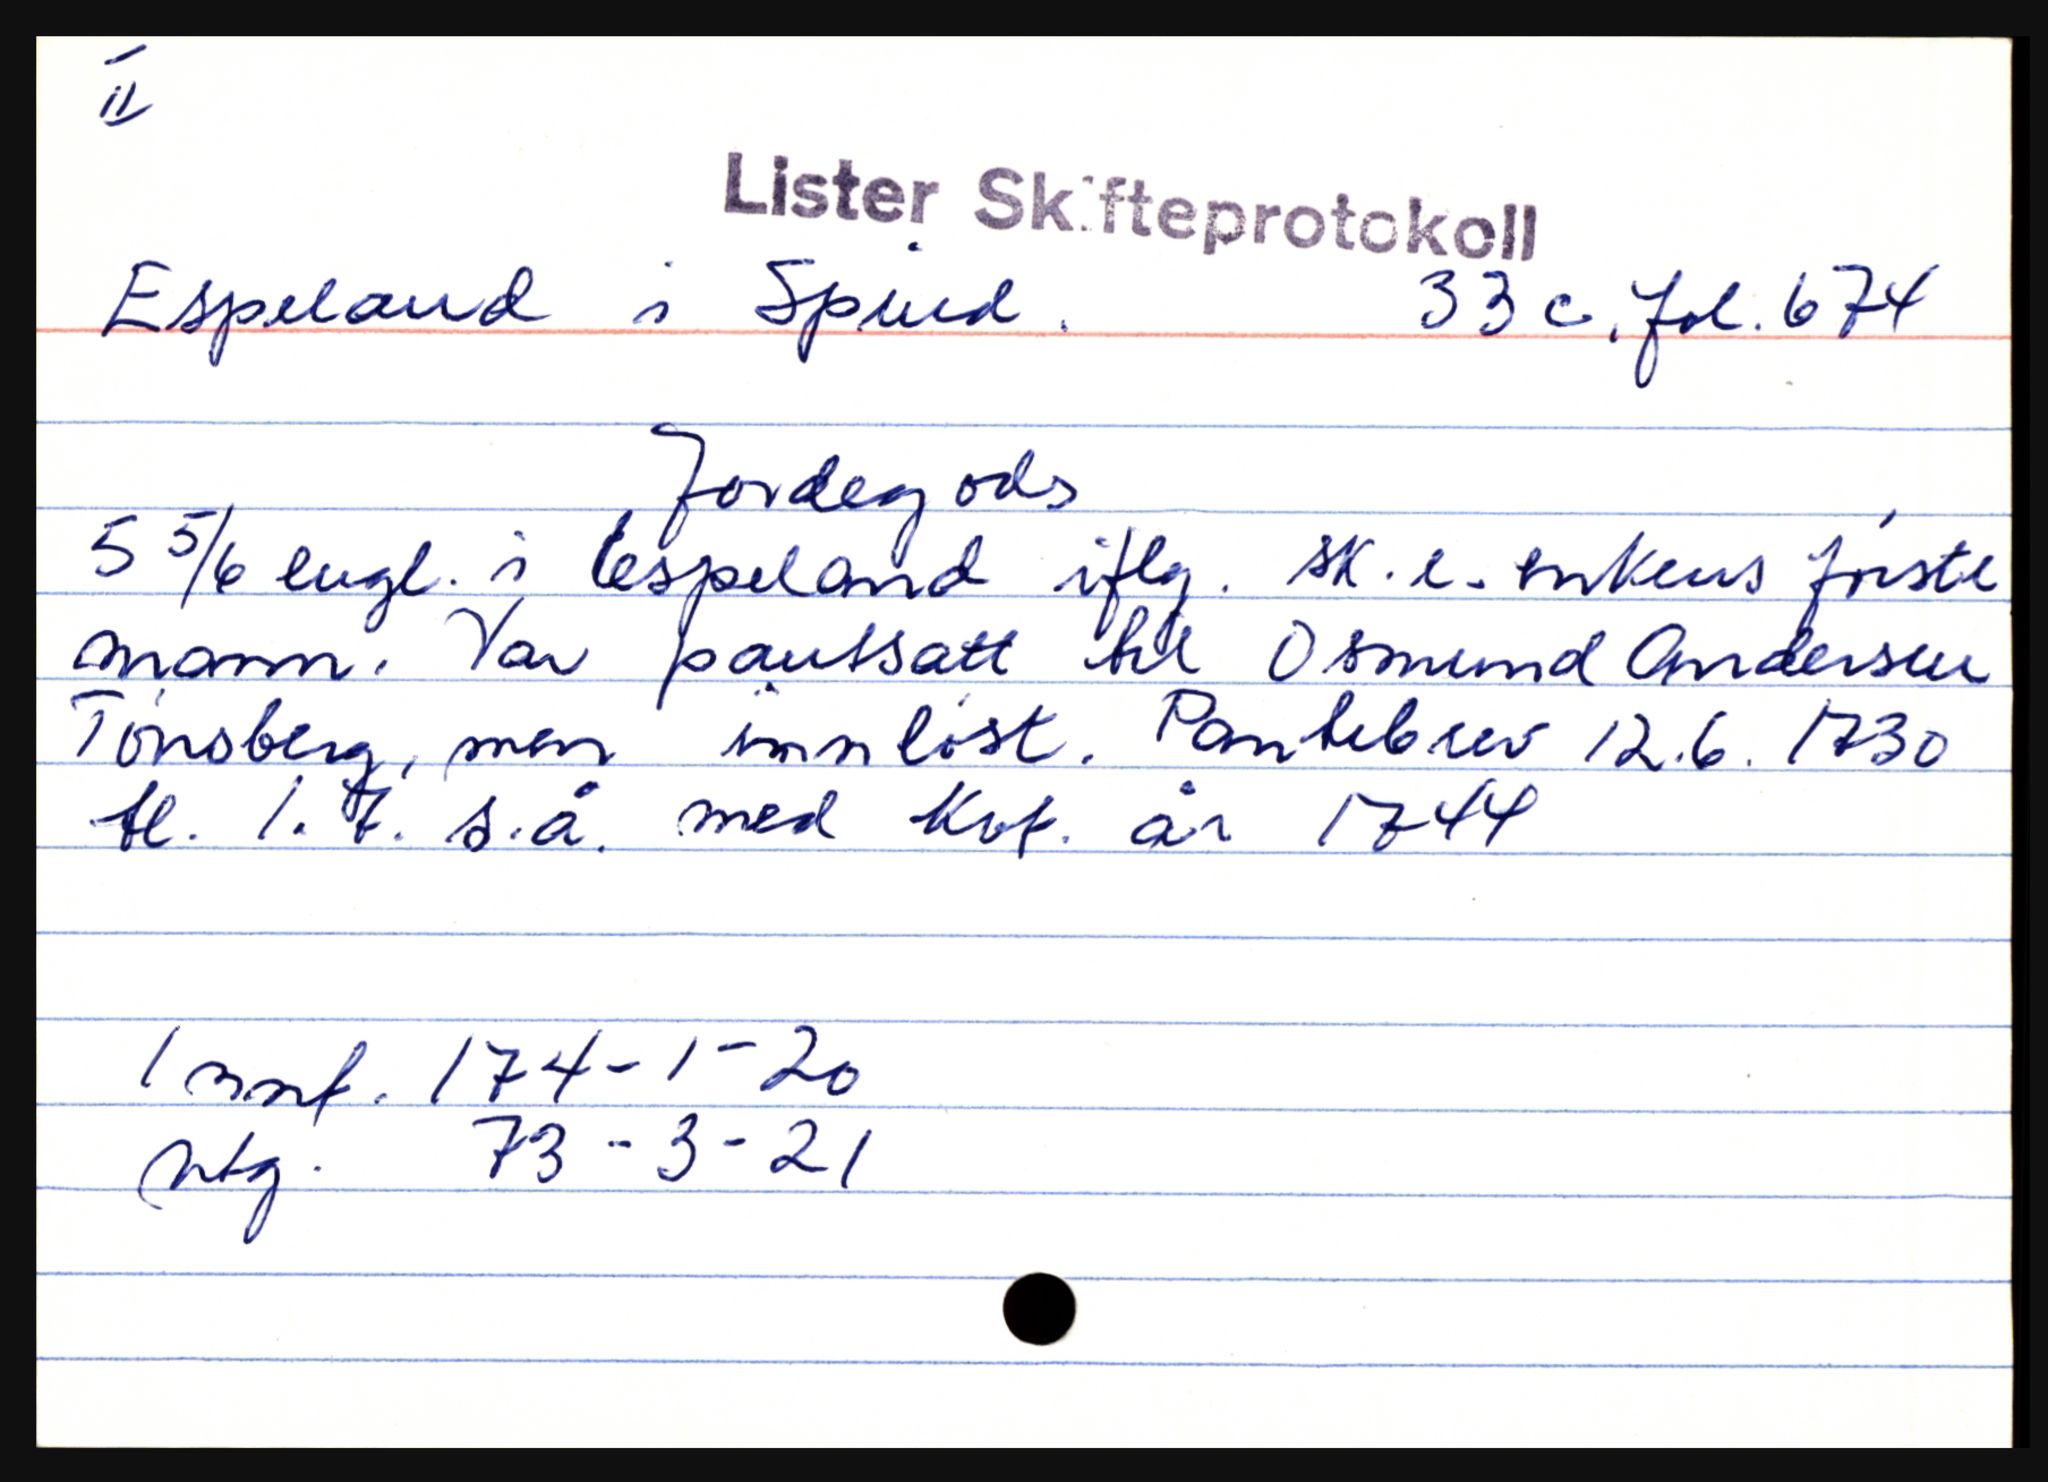 II
Lister Skifteprotokoll
Espeland i Spind. 33 c. fol. 674
Jordegods
5 5/6 engl. i Espeland iflg. sk. e. enkens förste
mann. Var pantsatt til Osmund Andersen
Tönsberg, men innlöst. Pantebrev 12.6. 1730
tl. 1. 7. s.å. med kvt. år 1744
Innf. 174-1-20
Utg. 73-3-21